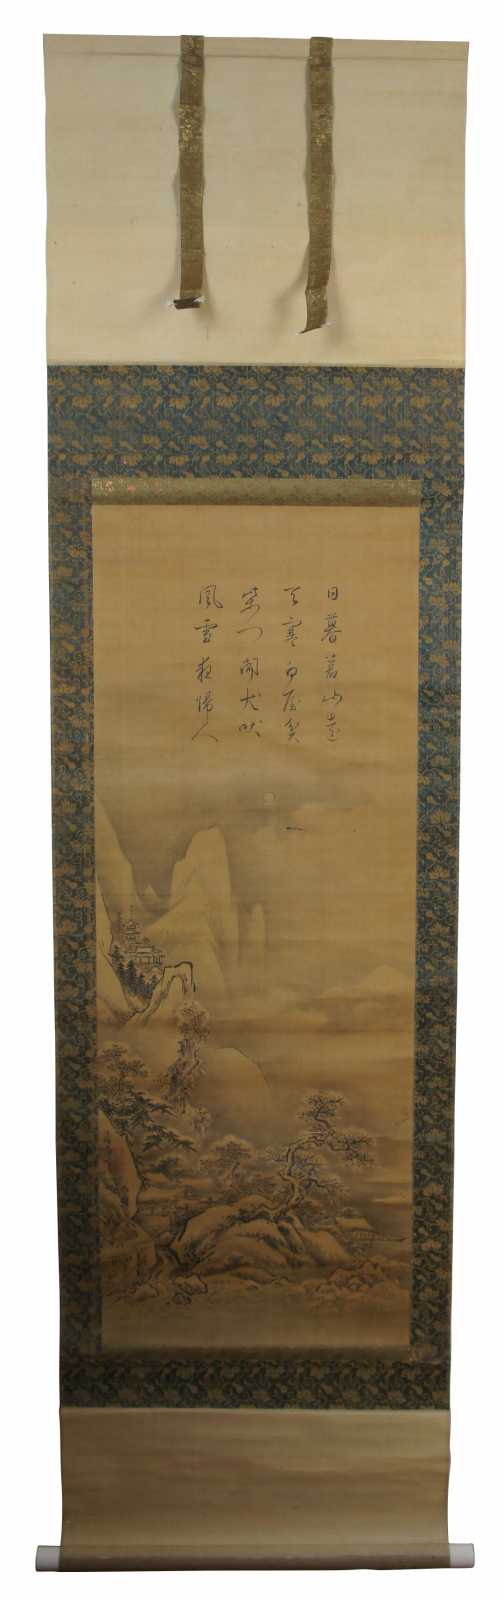 日暮蒼山遠
天寒白屋貧
柴門聞犬吠
風雪夜帰人